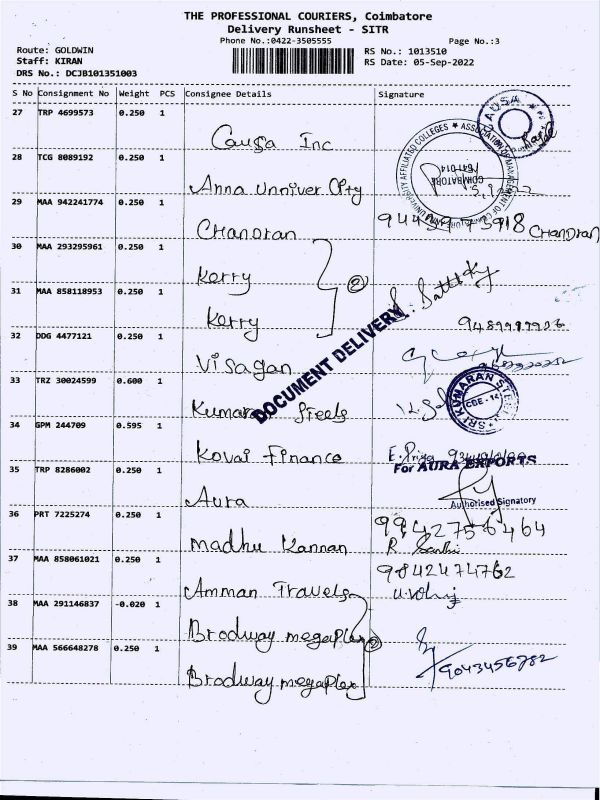 THE PROFESSIONAL COURIERS, Coimbatore
Delivery Runsheet - SITR
Phone No.:0422-3505555
Page No.:3
Route: GOLDWIN
Staff: KIRAN
DRS No.: DCJB101351003
RS No.: 1013510
RS Date: 05-Sep-2022
S No Consignment No Weight PCS Consignee Details Signature
27 TRP 4699573 0.250 1
CAUSA
Causa Inc
28 TCG 8089192 0.250 1
UNIVERSITY AFFILIATED COLLEGES ★ ASSOCIATION OF MANAGEMENT OF
COIMBATORE
641-014
Anna Unniver City
29 MAA 942241774 0.250 1
Chandran CHANDRAN
30 MAA 293295961 0.250 1
Kerry 2
31 MAA 858118953 0.250 1
Kerry
32 DDG 4477121 0.250 1
DOCUMENT DELIVERY
Visagan
33 TRZ 30024599 0.600 1
SRI KUMARAN
CBE - 14
Kumaran Steels
34 GPM 244709 0.595 1
Kovai Finance E. Priya
35 TRP 8286002 0.250 1
For AURA EXPORTS
Aura
Authorised Signatory
36 PRT 7225274 0.250 1
madhu Kannan
37 MAA 858061021 0.250 1
9842474762
Amman Travels
38 MAA 291146837 -0.020 1
Brodway megaplex 2
39 MAA 566648278 0.250 1
9043456782
Brodway megaplex